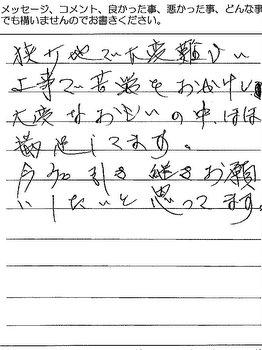 メッセージ、コメント、良かった事、悪かった事、どんな事
でも構いませんのでお書きください。
狭い地で大変難しい
工事で苦労をおかけし
大変なお思いの中、ほぼ
満足してます。
今後引き継きお願
いしたいと思ってます。